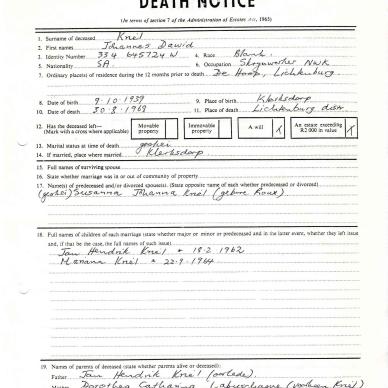 DEATH NOTICE
(In terms of section 7 of the Administration of Estates Act, 1965)
1. Surname of deceased Knel
2. First names Johannes Dawid
3. Identity Number 334 645724 W 4. Race Blank.
5. Nationality SA. 6. Occupation Skrynwerker NWK
7. Ordinary place(s) of residence during the 12 months prior to death De Hoop, Lichtenburg.
8. Date of birth 9-10-1939 9. Place of birth Klerksdorp
10. Date of death 30.8.1969 11. Place of death Lichtenburg distr.
12. Has the deceased left— (Mark with a cross where applicable) Movable property Immovable property A will X An estate exceeding R2 000 in value X
13. Marital status at time of death geskei
14. If married, place where married Klerksdorp
15. Full names of surviving spouse
16. State whether marriage was in or out of community of property
17. Name(s) of predeceased and/or divorced spouse(s). (State opposite name of each whether predeceased or divorced)
(geskei) Susanna Johanna Knel (gebore Roux).
18. Full names of children of each marriage (state whether major or minor or predeceased and in the latter event, whether they left issue
and, if that be the case, the full names of such issue)
Jan Hendrik Knel * 18-2-1962
Manana Knel * 22-9-1964
19. Names of parents of deceased (state whether parents alive or deceased):
Father Jan Hendrik Knel (oorlede).
Mother Dorothea Catharina Labuschagne (voorheen Knel)